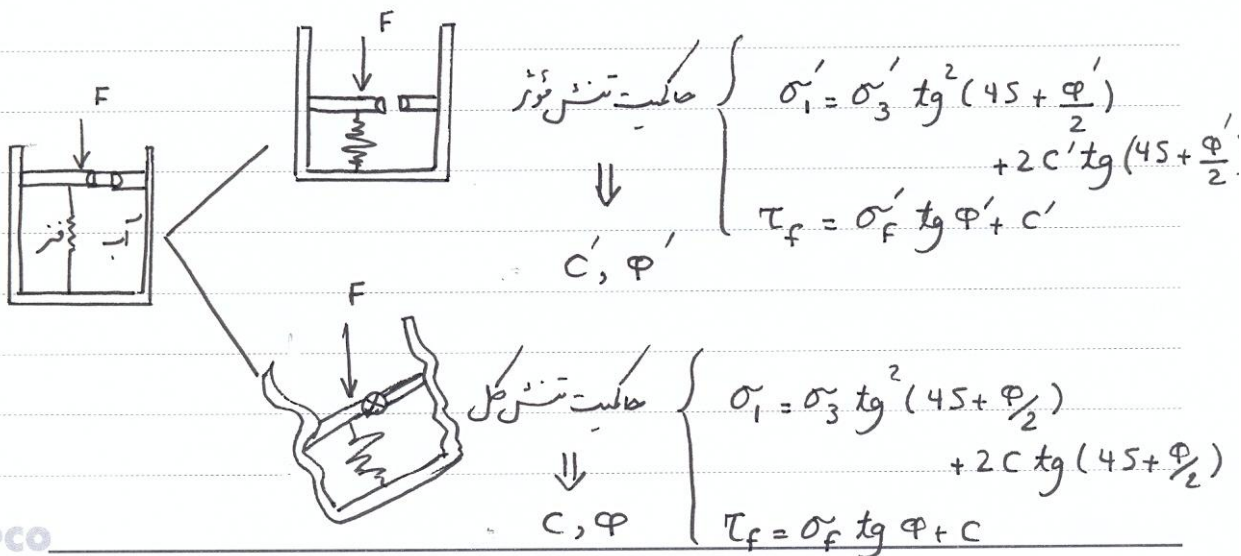 F
فنر
آب
F
حاکمیت تنش مؤثر
⇓
C′, φ′
σ′₁ = σ′₃ tg²(45 + φ′/2)
+ 2C′ tg(45 + φ′/2)
τ_f = σ′_f tg φ′ + C′
F
حاکمیت تنش کل
⇓
C, φ
σ₁ = σ₃ tg²(45 + φ/2)
+ 2C tg(45 + φ/2)
τ_f = σ_f tg φ + C
CO